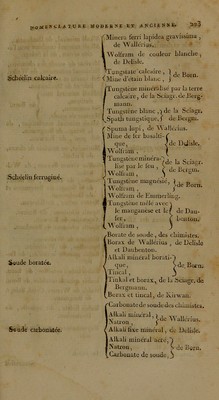 NOMENCLATURE MODERNE ET ANCIENNE. 223
Minera ferri lapidea gravissima,
de Wallérius.
Wolfram de couleur blanche,
de Delisle.
Schéelin calcaire.
Tungstane calcaire, } de Born.
Mine d'étain blanc,
Tungstène minéralisé par la terre
calcaire, de la Sciage, de Berg-
mann.
Tungstène blanc, } de la Sciage,
Spath tungstique, de Bergm.
Spuma lupi, de Wallérius.
Mine de fer basalti-
que, } de Delisle,
Wolfram,
Tungstène minéra-
lisé par le feu, } de la Sciage,
Wolfram, de Bergm.
Schéelin ferruginé.
Tungstène magnésié, } de Born.
Wolfram,
Wolfram de Emmerling.
Tungstène mêlé avec
le manganèse et le } de Dau-
fer, benton.
Wolfram,
Borate de soude, des chimistes.
Borax de Wallérius, de Delisle
et Daubenton.
Soude boratée.
Alkali minéral borati-
que, } de Born.
Tincal,
Tinkal et borax, de la Sciage, de
Bergmann.
Borax et tincal, de Kirwan.
Carbonate de soude des chimistes.
Alkali minéral, } de Wallérius.
Natron,
Soude carbonatée.
Alkali fixe minéral, de Delisle.
Alkali minéral aéré,
Natron, } de Born.
Carbonate de soude,